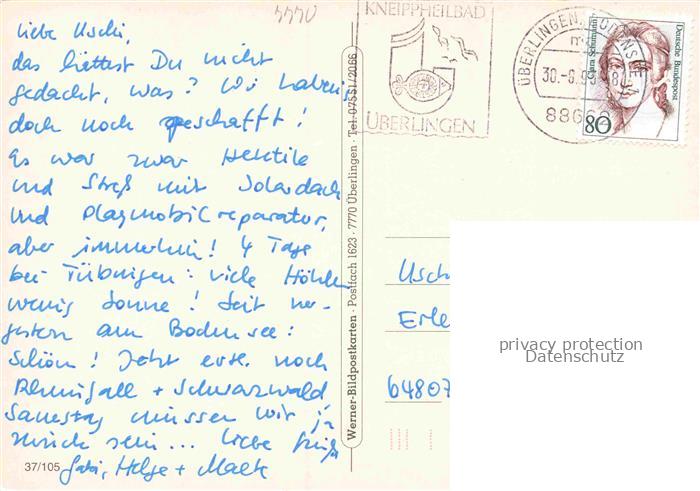 liebe Uschi,
das hättest Du nicht
gedacht, was? Wir haben's
doch noch geschafft!
Es war zwar Hektik
und Streß mit Solardach
und Playmobilreparatur,
aber immerhin! 4 Tage
bei Tübingen: viele Höhlen
wenig Sonne! Seit vor-
gestern am Bodensee:
Schön! Jetzt evtl. noch
Rheinfall + Schwarzwald
Samstag müssen wir ja
zurück sein... liebe Grüße
Gabi, Helge + Maek
37/105
Werner-Bildpostkarten · Postfach 1623 · 7770 Überlingen · Tel. 07551/2066
KNEIPPHEILBAD
ÜBERLINGEN
ÜBERLINGEN, BODENSEE 1
30.-6.
886
Clara Schumann
Deutsche Bundespost
80
Usch
Erle
64807
privacy protection
Datenschutz